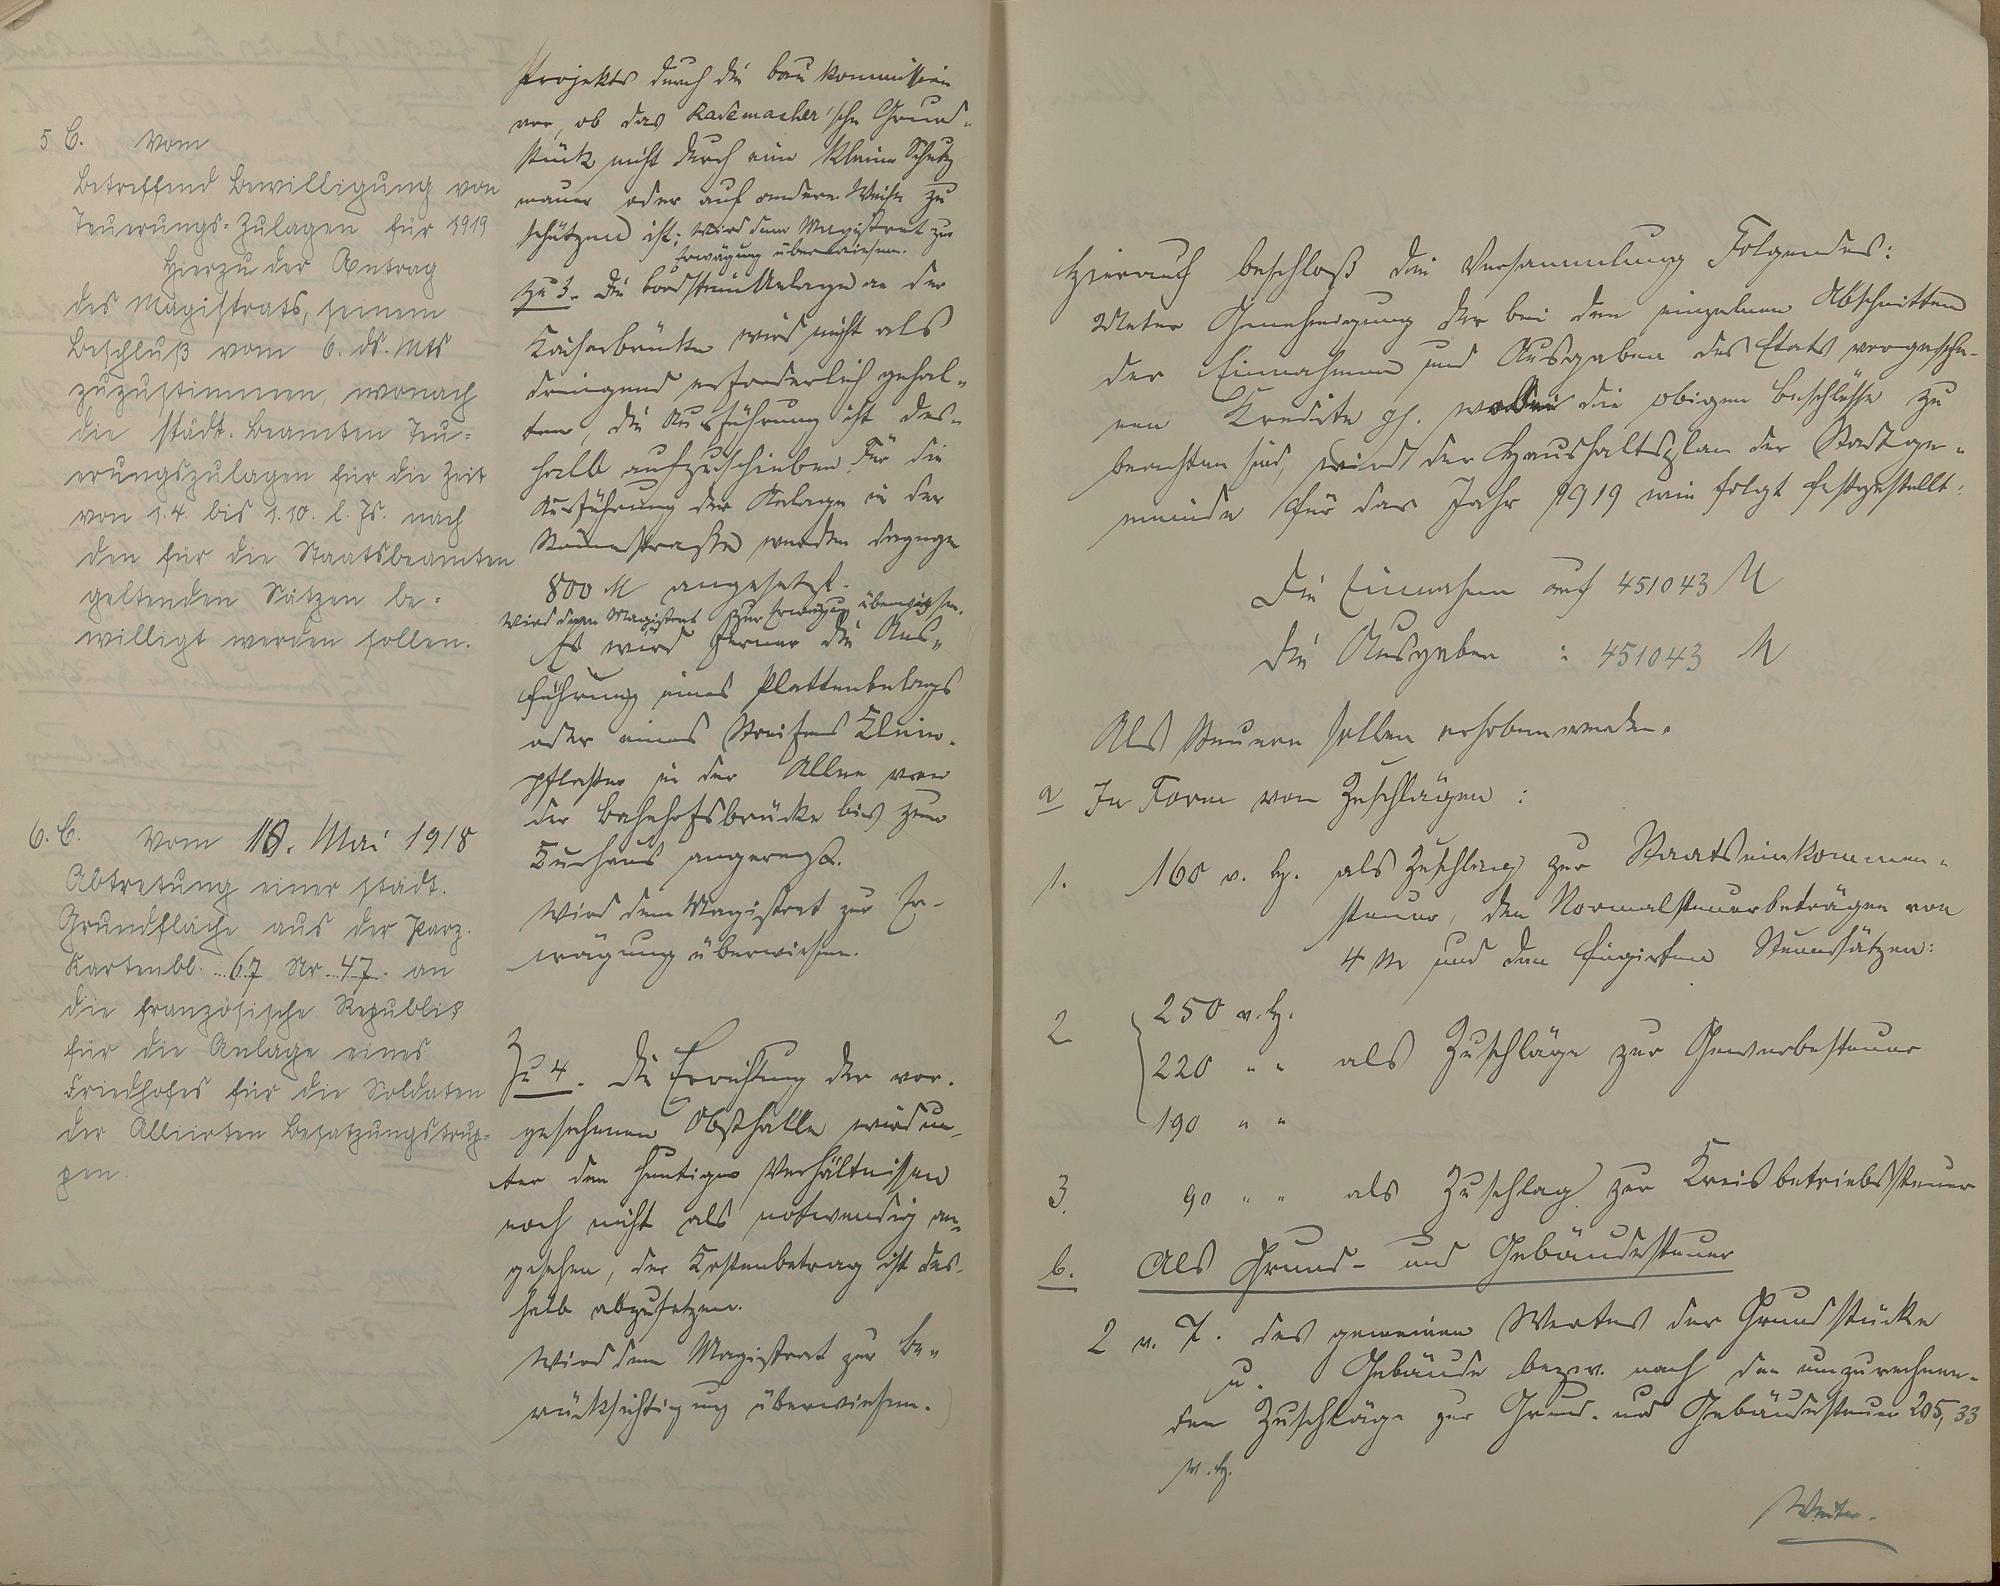 5 C. Vom
Betreffend Bewilligung von
Teuerungs-Zulagen für 1919
Hierzu der Antrag
des Magistrats, seinem
Beschluß vom 6. ds. Mts
zuzustimmen, wonach
die städt. Beamten Teu-
erungszulagen für die Zeit
von 1.4. bis 1.10. l. Js. nach
den für die Staatsbeamten
geltenden Sätzen be-
willigt werden sollen.
6. C. Vom 10. Mai 1918
Abtretung einer städt.
Grundfläche aus der Parz.
Kartenbl. 67 Nr. 47. an
die französische Republik
für die Anlage eines
Friedhofes für die Soldaten
der Alliirten Besatzungstrup-
pen.
Projekts durch die Bau Kommission
vor, ob das Rademacher'sche Grund-
stück nicht durch eine kleine Schutz
mauer oder auf andere Weise zu
schützen ist; wird dem Magistrat zur
Erwägung überwiesen.
Zu 3. Die Bordstein Anlage an der
Kaiserbrücke wird nicht als
dringend erforderlich gehal-
ten, die Ausführung ist des-
halb aufzuschieben. Für die
Ausführung der Anlage in der
Römerstraße werden dagegen
800 M angesetzt.
Wird dem Magistrat zur Erwägung überwiesen.
Es wird ferner die Aus-
führung eines Plattenbelags
oder eines Streifens Klein-
pflaster in der Allee von
der Bahnhofsbrücke bis zum
Kurhaus angeregt.
Wird dem Magistrat zur Er-
wägung überwiesen.
Zu 4. Die Errichtung der vor-
gesehenen Obsthalle wird un-
ter den heutigen Verhältnissen
noch nicht als notwendig an-
gesehen, der Kostenbetrag ist des-
halb abzusetzen.
Wird dem Magistrat zur Be-
rücksichtigung überwiesen.
Hierauf beschloß die Versammlung Folgendes:
Unter Genehmigung der bei den einzelnen Abschnitten
der Einnahmen und Ausgaben des Etats vorgesehe-
nen Kredite pp. wobei die obigen Beschlüsse zu
beachten sind, wird der Haushaltsplan der Stadtge-
meinde für das Jahr 1919 wie folgt festgestellt:
Die Einnahmen auf 451043 M
Die Ausgaben " 451043 M
Als Steuern sollen erhoben werden.
a In Form von Zuschlägen:
1. 160 v. H. als Zuschlag zur Staatseinkommen-
steuer, den Normalsteuerbeträgen von
4 M und den fingirten Steuersätzen:
2 250 v. H.
220 " " als Zuschläge zur Gewerbesteuer
190 " "
3. 90 " " als Zuschlag zur Kreisbetriebssteuer
b. Als Grund- und Gebäudesteuer
2 v. T. des gemeinen Wertes der Grundstücke
u. Gebäude bezw. nach den umzurechnen-
den Zuschläge zur Grund- und Gebäudesteuer 205,33
v. H.
Weiter.